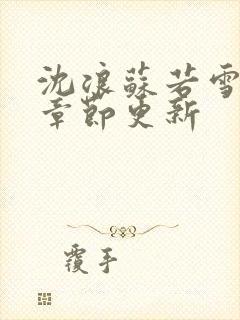 沈浪蘇若雪
章節更新
覆手